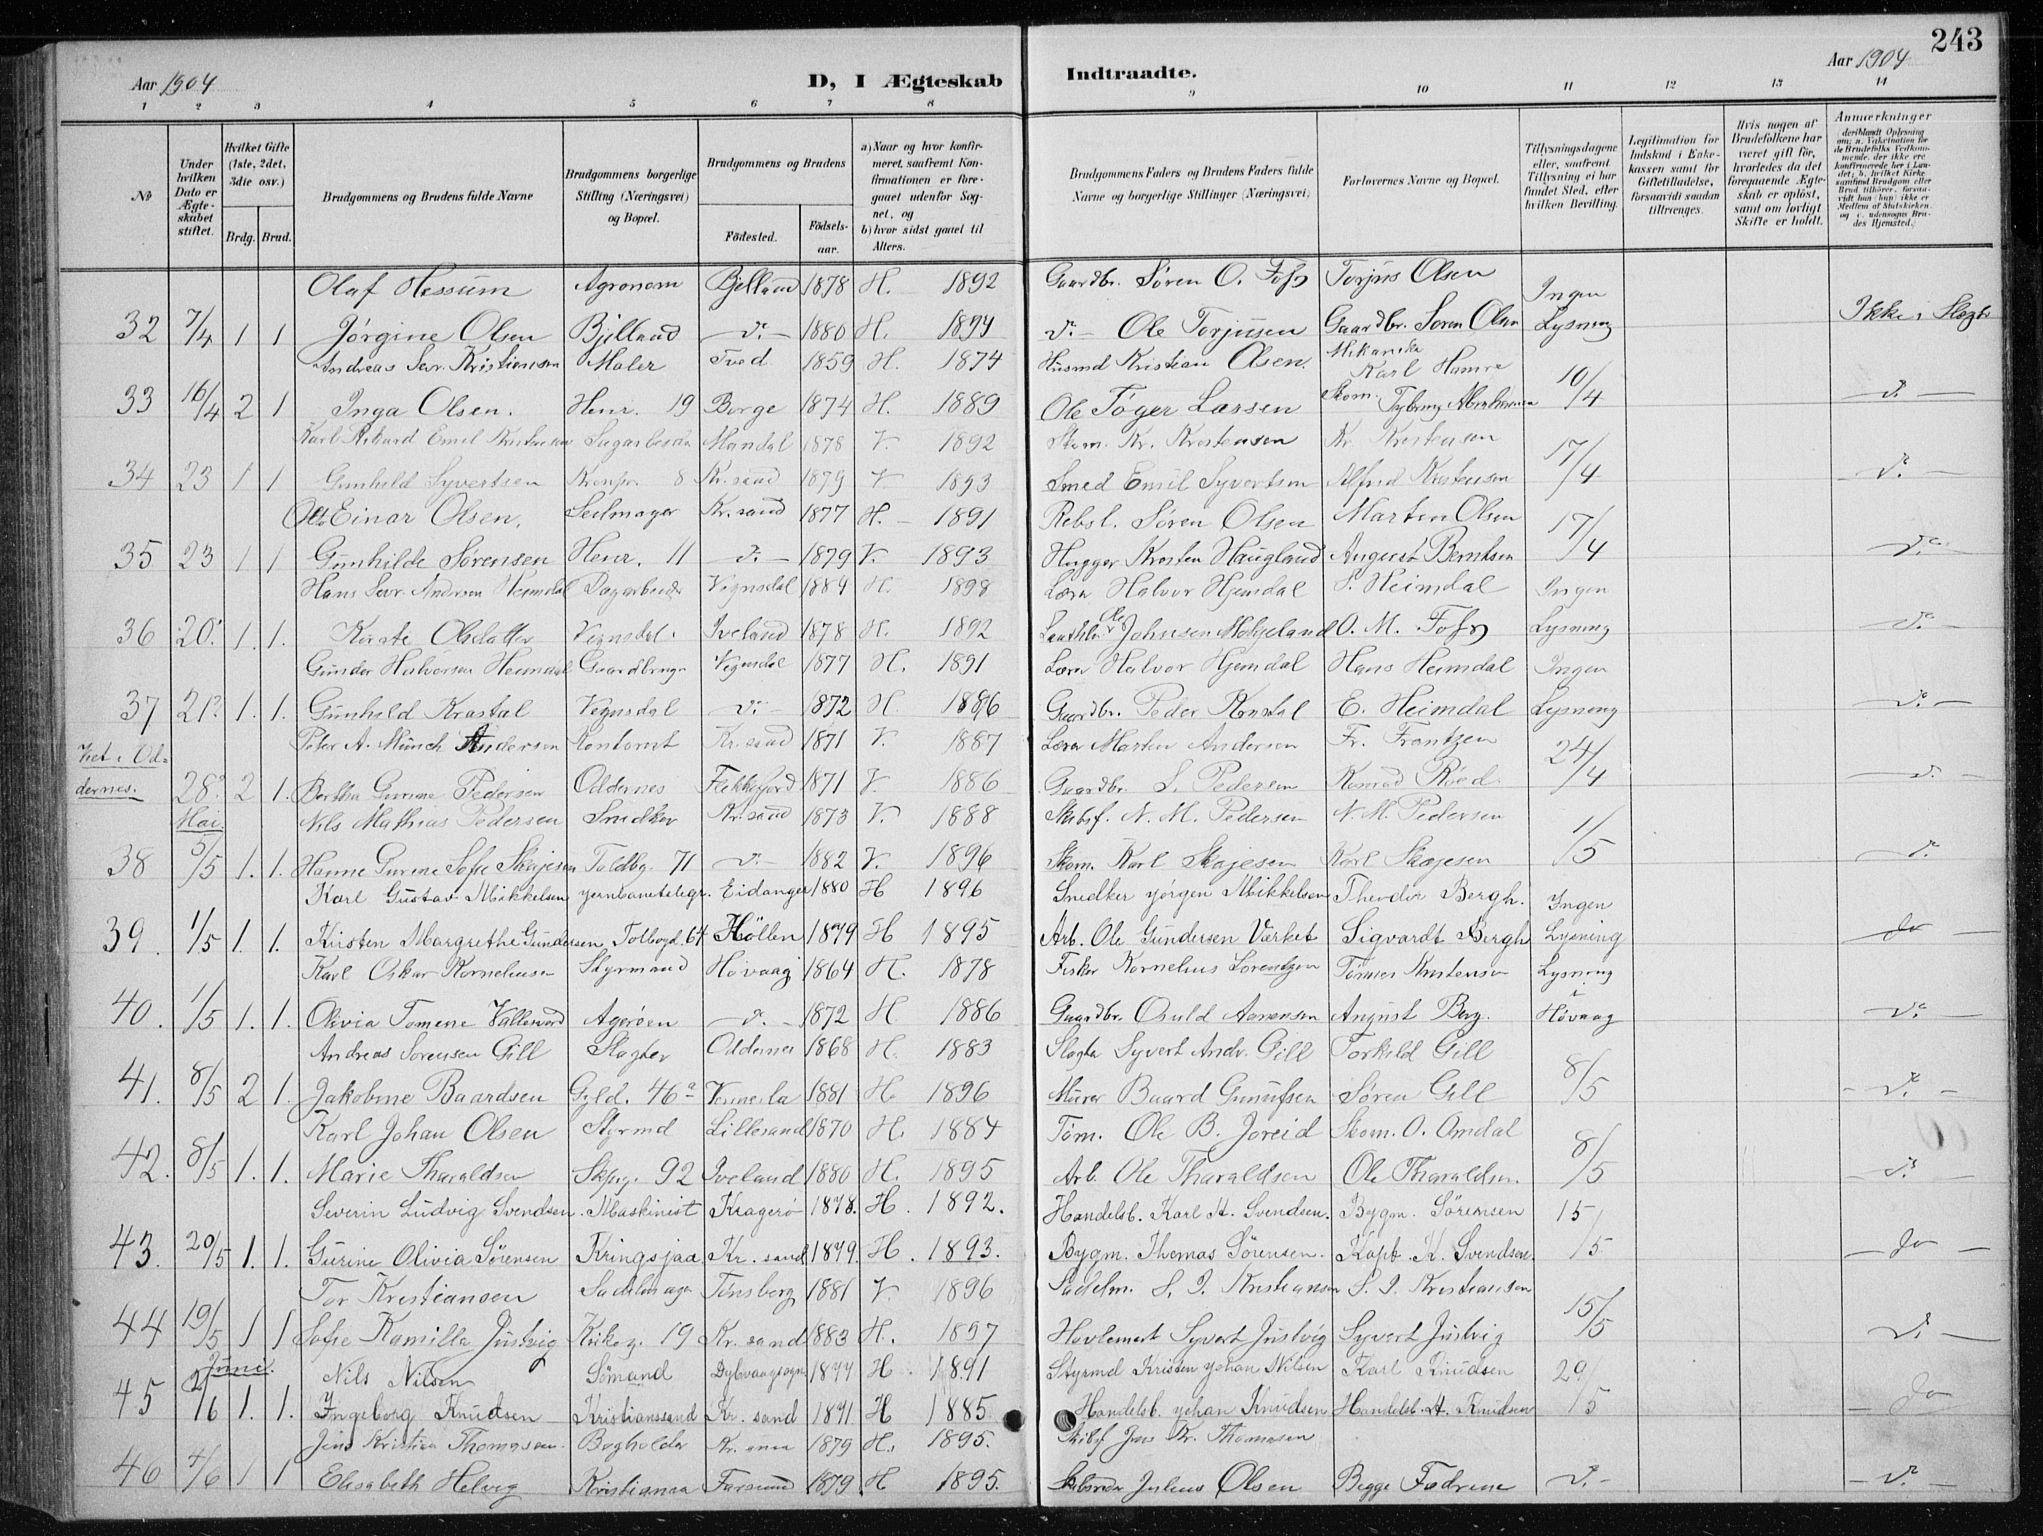 243
Aar 1904
D, I Ægteskab Indtraadte.
Aar 1904
1 2 3 4 5 6 7 8 9 10 11 12 13 14
No
Under hvilken Dato er Ægteskabet stiftet.
Hvilket Gifte (1ste, 2det, 3die osv.)
Brdg. Brud.
Brudgommens og Brudens fulde Navne
Brudgommens borgerlige Stilling (Næringsvei) og Bopæl.
Brudgommens og Brudens
Fødested. Fødselsaar.
a) Naar og hvor konfirmeret, saafremt Konfirmationen er foregaaet udenfor Sognet, og
b) hvor sidst gaaet til Alters.
Brudgommens Faders og Brudens Faders fulde Navne og borgerlige Stillinger (Næringsvei)
Forlovernes Navne og Bopæl.
Tillysningsdagene eller, saafremt Tillysning ei har fundet Sted, efter hvilken Bevilling.
Legitimation for Indskud i Enkekassen samt for Giftetilladelse, forsaavidt saadan tiltrænges.
Hvis nogen af Brudefolkene har været gift før, hvorledes da det foregaaende Ægteskab er opløst, samt om lovligt Skifte er holdt.
Anmærkninger
Olaf Hessum Agronom Bjelland 1878 H. 1892 Gaardbr. Søren O. Foss Torjus Olsen Ingen
32 7/4 1 1 Jørgine Olsen Bjelland do 1880 H. 1894 do Ole Torjusen Gaardbr. Soren Olsen Lysning Ikke i Slegt
Andreas Sev. Kristiansen Maler Tved 1859 H. 1874 Husmd Kristian Olsen. Mekaniker Karl Hamre
33 16/4 2 1 Inga Olsen. Henr. 19 Borge 1874 H. 1889 Ole Tøger Larsen Skom. Abrahamsen 10/4 do
Karl Rikard Emil Kristensen Sagarbeider Mandal 1878 V. 1892 Skom. Kr. Kristensen Kr. Kristensen
34 23 1 1 Gunhild Syvertsen Kronpr. 8 Kr.sand 1879 V. 1893 Smed Emil Syvertsen Alfred Kristensen 17/4 do
Otto Einar Olsen. Seilmager Kr.sand 1877 H. 1891 Rebsl. Søren Olsen Martin Olsen
35 23 1 1 Gunhilde Sørensen Henr. 11 do 1879 V. 1893 Hugger Kristen Haugland August Berntsen 17/4 do
Hans Sev. Andersen Heimdal Dagarbeider Vegusdal 1884 H. 1898 Lærer Halvor Hjemdal S. Heimdal Ingen
36 20. 1. 1. Kirste Olsdatter Vegusdal. Iveland 1878 H. 1892 Ole Johnsen O. M. Foss Lysning do
Gunder Halvorsen Heimdal Gaardbruger Vegusdal 1877 H. 1891 Lærer Halvor Hjemdal Hans Heimdal Ingen
37 21. 1. 1. Gunhild Krostal Vegusdal do 1872 H. 1886 Gaardbr. Peder Krostal E. Heimdal Lysning do
Peter A. Munch Andersen Kontorist Kr.sand 1871 V. 1887 Lærer Martin Andersen Fr. Frantzen
Viet i Oddernes. 28. 2 1. Bertha Gurine Pedersen Oddernes Flekkefjord 1871 V. 1886 Gaardbr. S. Pedersen Konrad Røed. 24/4 do
Mai
Nils Mathias Pedersen Snedker Kr.sand 1873 V. 1888 Skibsf. N. M. Pedersen N. M. Pedersen
38 5/5 1. 1. Hanne Gurine Sofie Skajesen Toldbg. 71 do 1882 V. 1896 Skom. Karl Skajesen Karl Skajesen 1/5 do
Karl Gustav Mikkelsen jernbanetelegr. Eidanger 1880 H 1896 Snedker jørgen Mikkelsen Theodor Bergh. Ingen
39. 1/5 1. 1. Kirsten Margrethe Gundersen Tolbogd. 64 Höllen 1879 H 1895 Arb. Ole Gundersen Værket Sigvardt Bergh Lysning do
Karl Oskar Kornelius​sen Styrmand Høvaag 1864 H. 1878 Fisker Kornelius Lorentzen Tønnes Kristensen Lysning i
40. 1/5 1. 1. Olivia Tomene Vallesverd Agerøen do 1872 H 1886 Gaardbr Osuld Aanensen August Berg. Høvaag do
Andreas Sørensen Gill Slagter Oddernes 1868 H. 1883 Slagter Syvert Andr. Gill Torkild Gill
41. 8/5 2 1. Jakobine Baardsen Gyld. 46a Vennesla 1881 H. 1896 Murer Baard Gunufsen Søren Gill 8/5 do
Karl Johan Olsen Styrmd Lillesand 1870 H. 1884 Tøm. Ole B. Joreid Skom. O. Omdal
42. 8/5 1. 1. Marie Tharaldsen Skipg. 92 Iveland 1880 H. 1895 Arb. Ole Tharaldsen Ole Tharaldsen. 8/5 do
Severin Ludvig Svendsen. Maskinist Kragerø 1878. H. 1892. Handelsb. Karl A. Svendsen. Bygm. Sörensen
43. 20/5 1. 1. Gurine Olivia Sörensen Kringsjaa Kr. sand 1879. H. 1893. Bygm. Thomas Sörensen. Kapt. K. Svendsen. 15/5 do
Tor Kristiansen Sadelmager Tønsberg 1881 V. 1896 Sadelm. S. I. Kristiansen S. I. Kristiansen
44 19/5 1 1 Sofie Kamilla Justvig Kirkeg. 19 Kr. sand 1883 H. 1897 Syvert Justvig Syvert Justvig 15/5 do
Juni.
Nils Nilsen Sömand Dybvaagsogn 1877 H. 1891 Styrmd Kristen Johan Nilsen Karl Knudsen
45 2/6 1. 1. Ingeborg Knudsen Kristianssand Kr. sand 1871 H 1885 Handelsb. johan Knudsen Handelsb. A. Knudsen 29/5 do
Jens Kristian Thomassen. Bogholder 1879 H. 1895. Skibsf Jens Kr. Thomassen
46 4/6 1 1 Elisabeth Helvig Kristiania Farsund 1879 H 1895. Skibsreder Julius Olsen Begge Fædrene do do